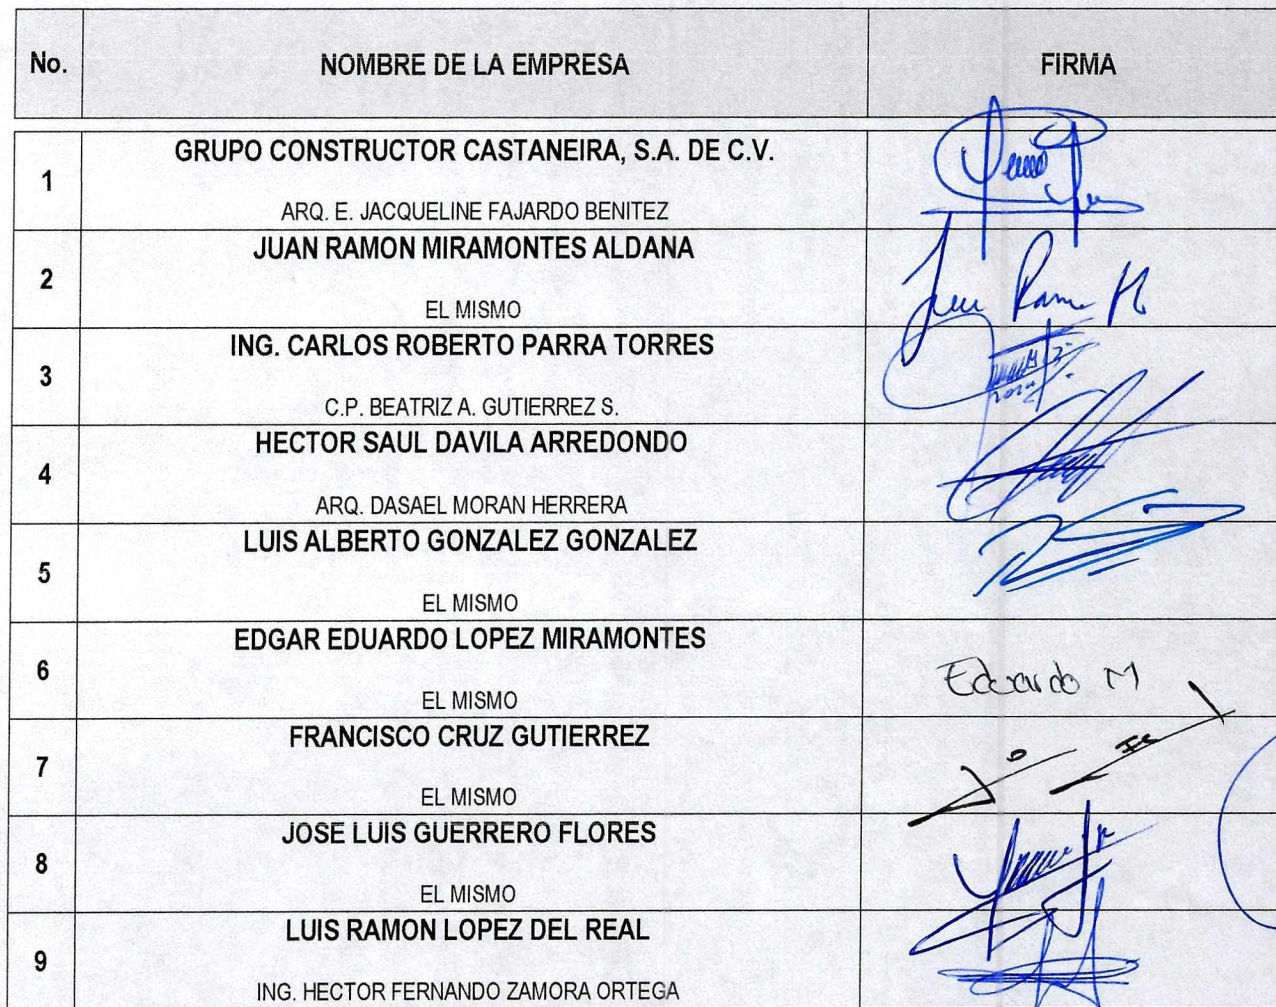 No. NOMBRE DE LA EMPRESA FIRMA
GRUPO CONSTRUCTOR CASTANEIRA, S.A. DE C.V.
1
ARQ. E. JACQUELINE FAJARDO BENITEZ
JUAN RAMON MIRAMONTES ALDANA
2
EL MISMO
Juan Ramon M
ING. CARLOS ROBERTO PARRA TORRES
3
C.P. BEATRIZ A. GUTIERREZ S.
HECTOR SAUL DAVILA ARREDONDO
4
ARQ. DASAEL MORAN HERRERA
LUIS ALBERTO GONZALEZ GONZALEZ
5
EL MISMO
EDGAR EDUARDO LOPEZ MIRAMONTES
6
Eduardo M
EL MISMO
FRANCISCO CRUZ GUTIERREZ
7
EL MISMO
JOSE LUIS GUERRERO FLORES
8
EL MISMO
LUIS RAMON LOPEZ DEL REAL
9
ING. HECTOR FERNANDO ZAMORA ORTEGA